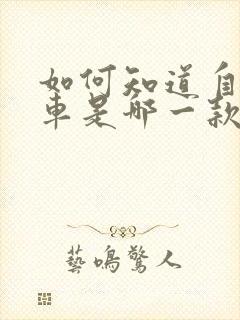 如何知道自
车是哪一款
藝鳴驚人